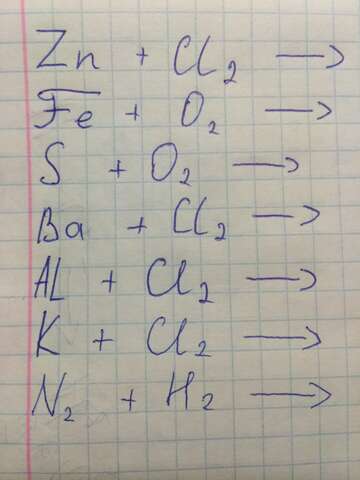 Zn + Cl₂ →
Fe + O₂ →
S + O₂ →
Ba + Cl₂ →
AL + Cl₂ →
K + Cl₂ →
N₂ + H₂ →